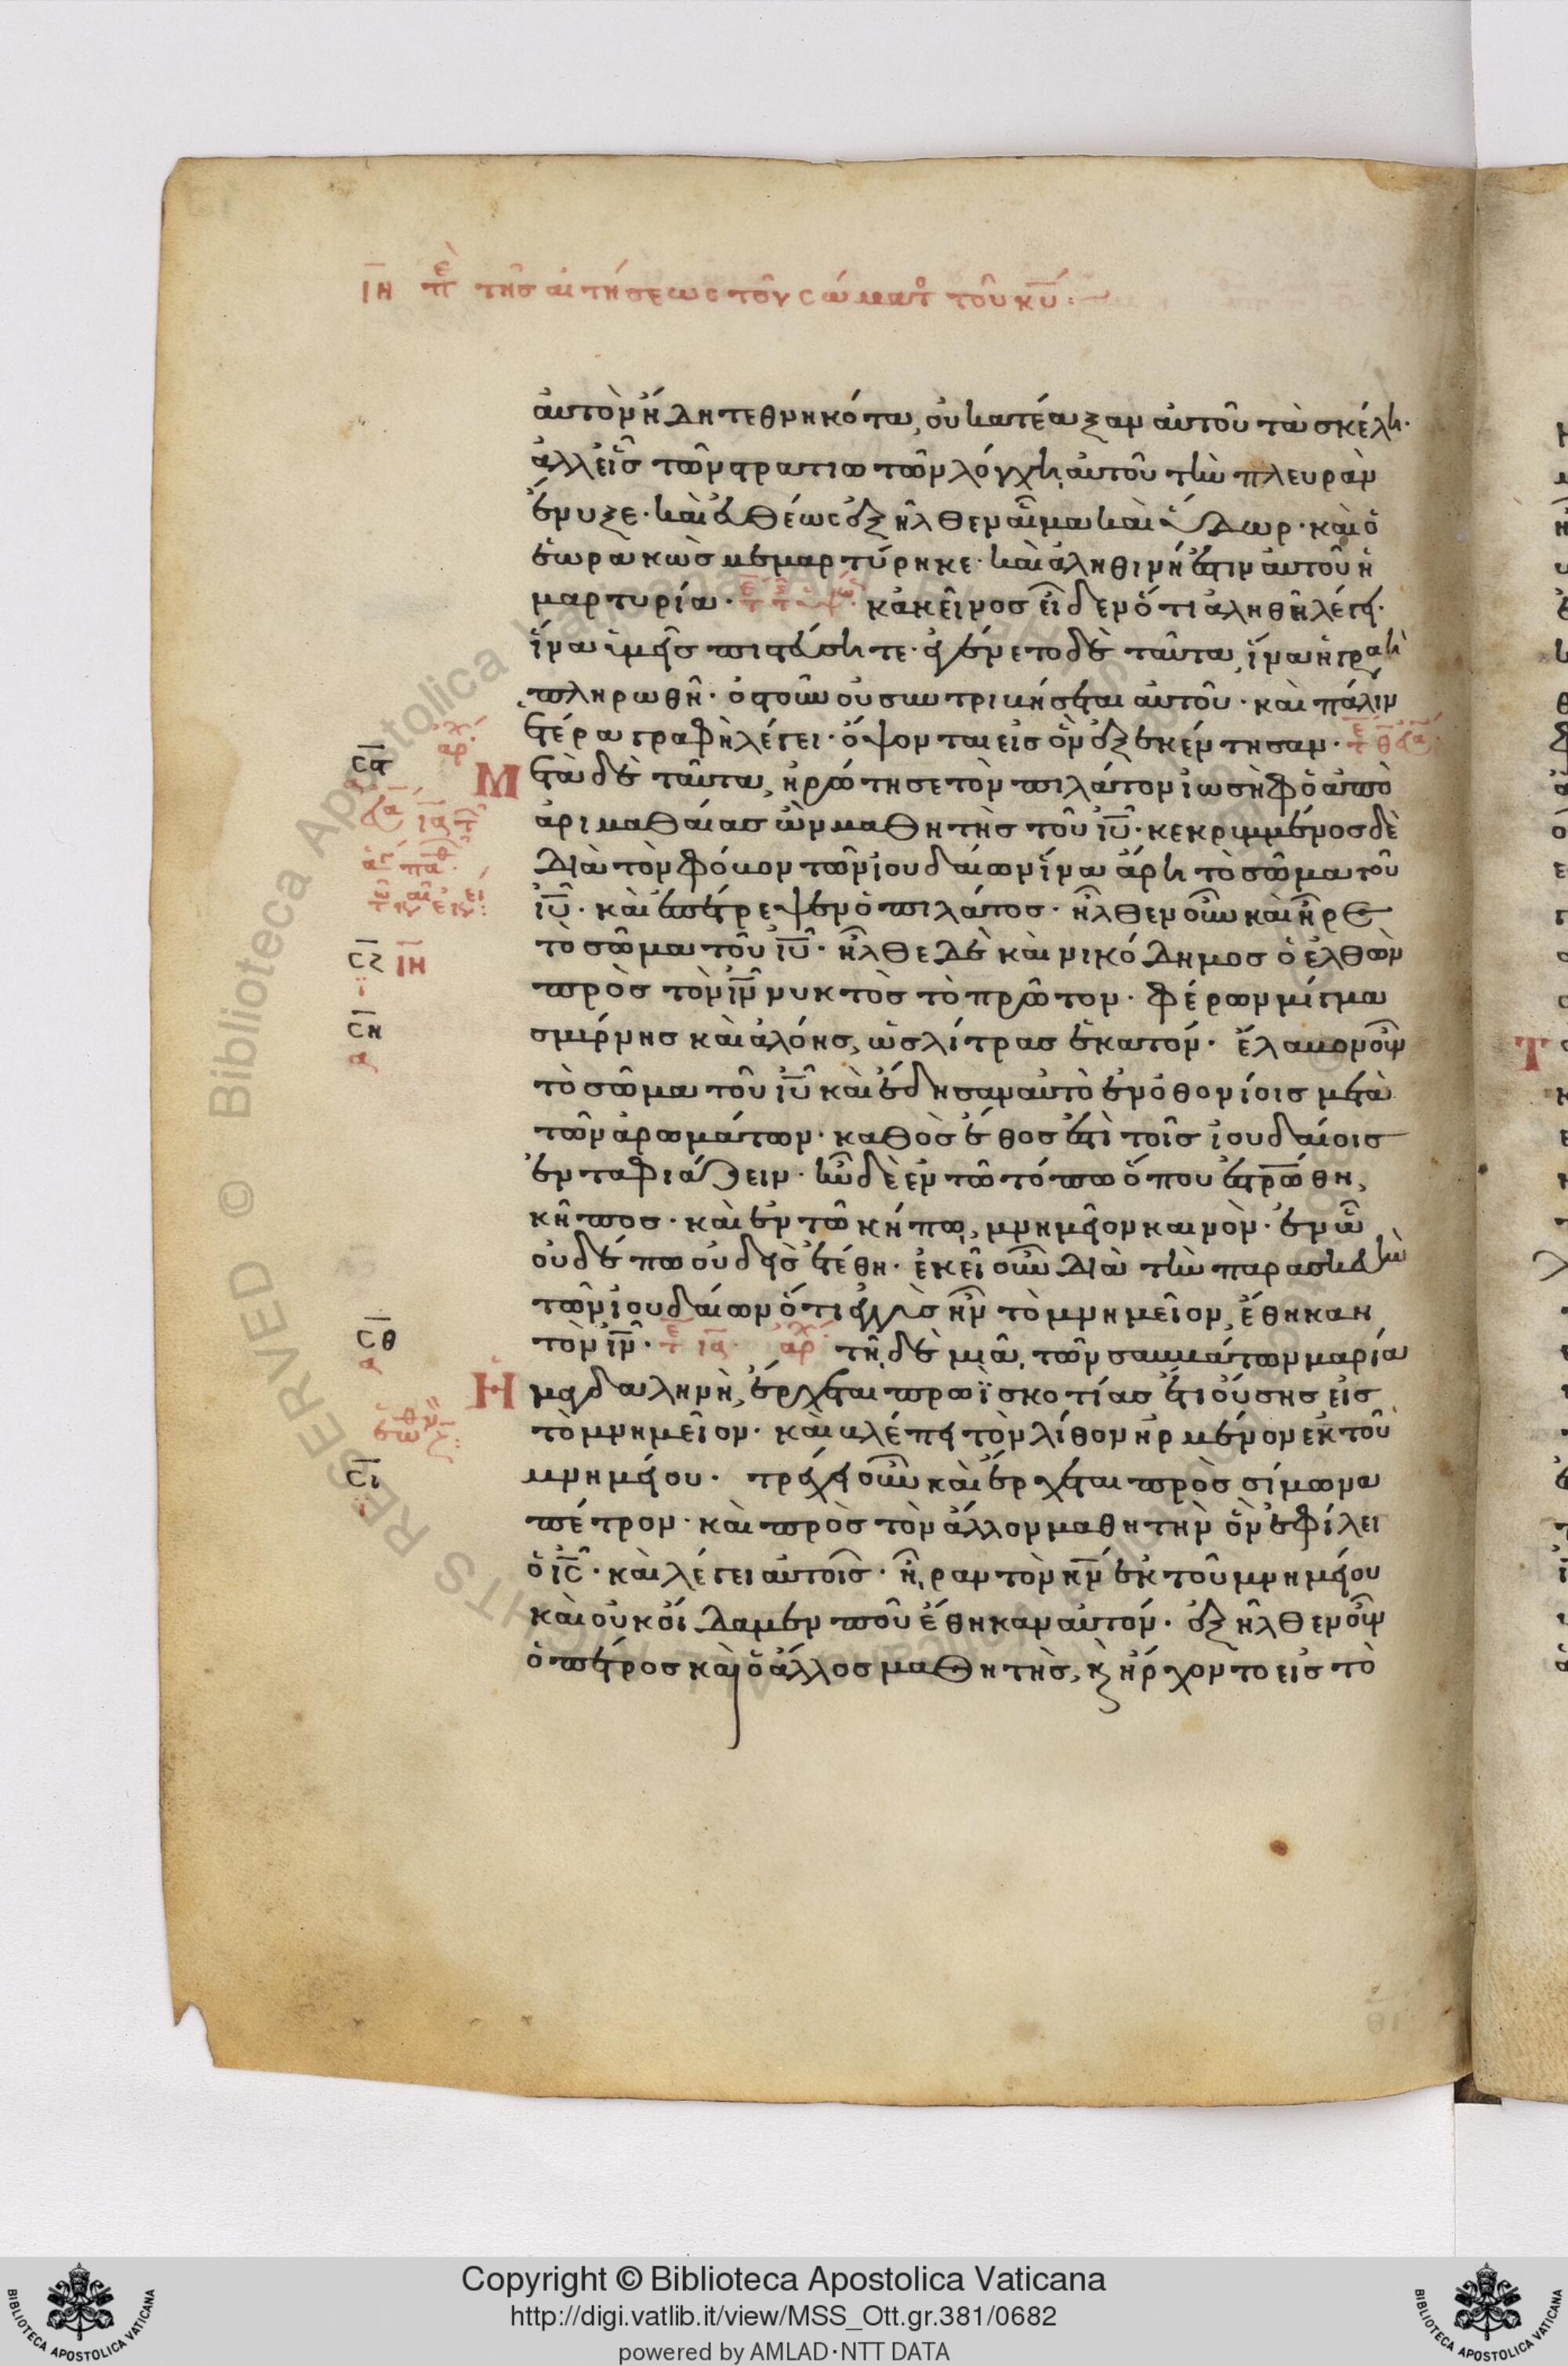 ιη πε της αιτήσεως τοῦ σώματ τοῦ κυ
αὐτὸν ἤδη τεθνηκότα, οὐ κατέαξαν αὐτοῦ τὰ σκέλη·
ἀλλ εἷς τῶν στρατιωτῶν λόγχη αὐτοῦ τὴν πλευρὰν
ἔνυξε· καὶ εὐθέως ἐξῆλθεν αἷμα καὶ ὕδωρ· καὶ ὁ
ἑωρακὼς μεμαρτύρηκε· καὶ ἀληθινή ἐστιν αὐτοῦ ἡ
μαρτυρία· κακεῖνος εἶδεν ὅτι ἀληθῆ λέγει·
ἵνα ὑμεῖς πιστεύσητε· ἐγένετο δὲ ταῦτα, ἵνα ἡ γραφὴ
πληρωθῆ· ὀστοῦν οὐ συντριβήσεται αὐτοῦ· καὶ πάλιν
ἑτέρα γραφὴ λέγει· ὄψονται εἰς ὃν ἐξεκέντησαν·
αρχ
σϛ Μετὰ δὲ ταῦτα, ἠρώτησε τὸν πιλάτον ἰωσὴφ ὁ ἀπὸ
ἀριμαθαίας ὢν μαθητὴς τοῦ ιυ· κεκρυμμένος δὲ
διὰ τὸν φόβον τῶν ἰουδαίων ἵνα ἄρη τὸ σῶμα τοῦ
ιυ· καὶ ἐπέτρεψεν ὁ πιλάτος· ἦλθεν οὖν καὶ ἦρε
σζ ιη τὸ σῶμα τοῦ ιυ· ἦλθε δὲ καὶ νικόδημος ὁ ἐλθὼν
πρὸς τὸν ιν νυκτὸς τὸ πρῶτον· φέρων μίγμα
ση σμύρνης καὶ ἀλόης, ὡς λίτρας ἑκατόν· ἔλαβον οὖν
α
τὸ σῶμα τοῦ ιυ καὶ ἔδησαν αὐτὸ ἐν ὀθονίοις μετὰ
τῶν ἀρωμάτων· καθὸς ἔθος ἐστὶ τοῖς ἰουδαίοις
ἐνταφιάζειν· ἦν δὲ ἐν τῶ τόπω ὅπου ἐστρώθη,
κῆπος· καὶ ἐν τῶ κήπω, μνημεῖον καινὸν· ἐν ὧ
οὐδέπω οὐδεὶς ἐτέθη· ἐκεῖ οὖν διὰ τὴν παρασκευὴν
τῶν ἰουδαίων ὅτι ἐγγὺς ἦν τὸ μνημεῖον, ἔθηκαν
σθ τὸν ιν· αρχ τῆ δὲ μιᾶ τῶν σαββάτων μαρία
α
Ἡ μαγδαληνὴ, ἔρχεται πρωῒ σκοτίας ἔτι οὔσης εἰς
τὸ μνημεῖον· καὶ βλέπει τὸν λίθον ἠρμένον ἐκ τοῦ
σι μνημείου· τρέχει οὖν καὶ ἔρχεται πρὸς σίμωνα
πέτρον· καὶ πρὸς τὸν ἄλλον μαθητὴν ὃν ἐφίλει
ὁ ις· καὶ λέγει αὐτοῖς· ἦραν τὸν κν ἐκ τοῦ μνημείου
καὶ οὐκ οἴδαμεν ποῦ ἔθηκαν αὐτόν· ἐξῆλθεν οὖν
ὁ πέτρος καὶ ὁ ἄλλος μαθητὴς, κ ἤρχοντο εἰς τὸ
Biblioteca Apostolica Vaticana
Copyright © Biblioteca Apostolica Vaticana
http://digi.vatlib.it/view/MSS_Ott.gr.381/0682
powered by AMLAD·NTT DATA
BIBLIOTECA APOSTOLICA VATICANA
BIBLIOTECA APOSTOLICA VATICANA